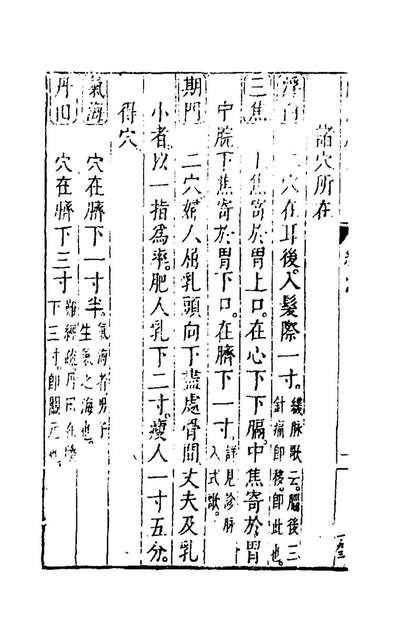 諸穴所在
浮白 二穴在耳後入髮際一寸。緩脉歌云。腦後三針痛即移。即此也。
三焦 上焦寄於胃上口。在心下下膈中焦寄於胃
中脘下焦寄於胃下口。在臍下一寸。詳見診脉入式歌。
期門 二穴婦人屈乳頭向下盡處骨間丈夫及乳
小者以一指為率。肥人乳下二寸。瘦人一寸五分。
得穴
氣海 穴在臍下一寸半。氣海者男子生氣之海也。
丹田 穴在臍下三寸 難經疏丹田在臍下三寸。即關元也。